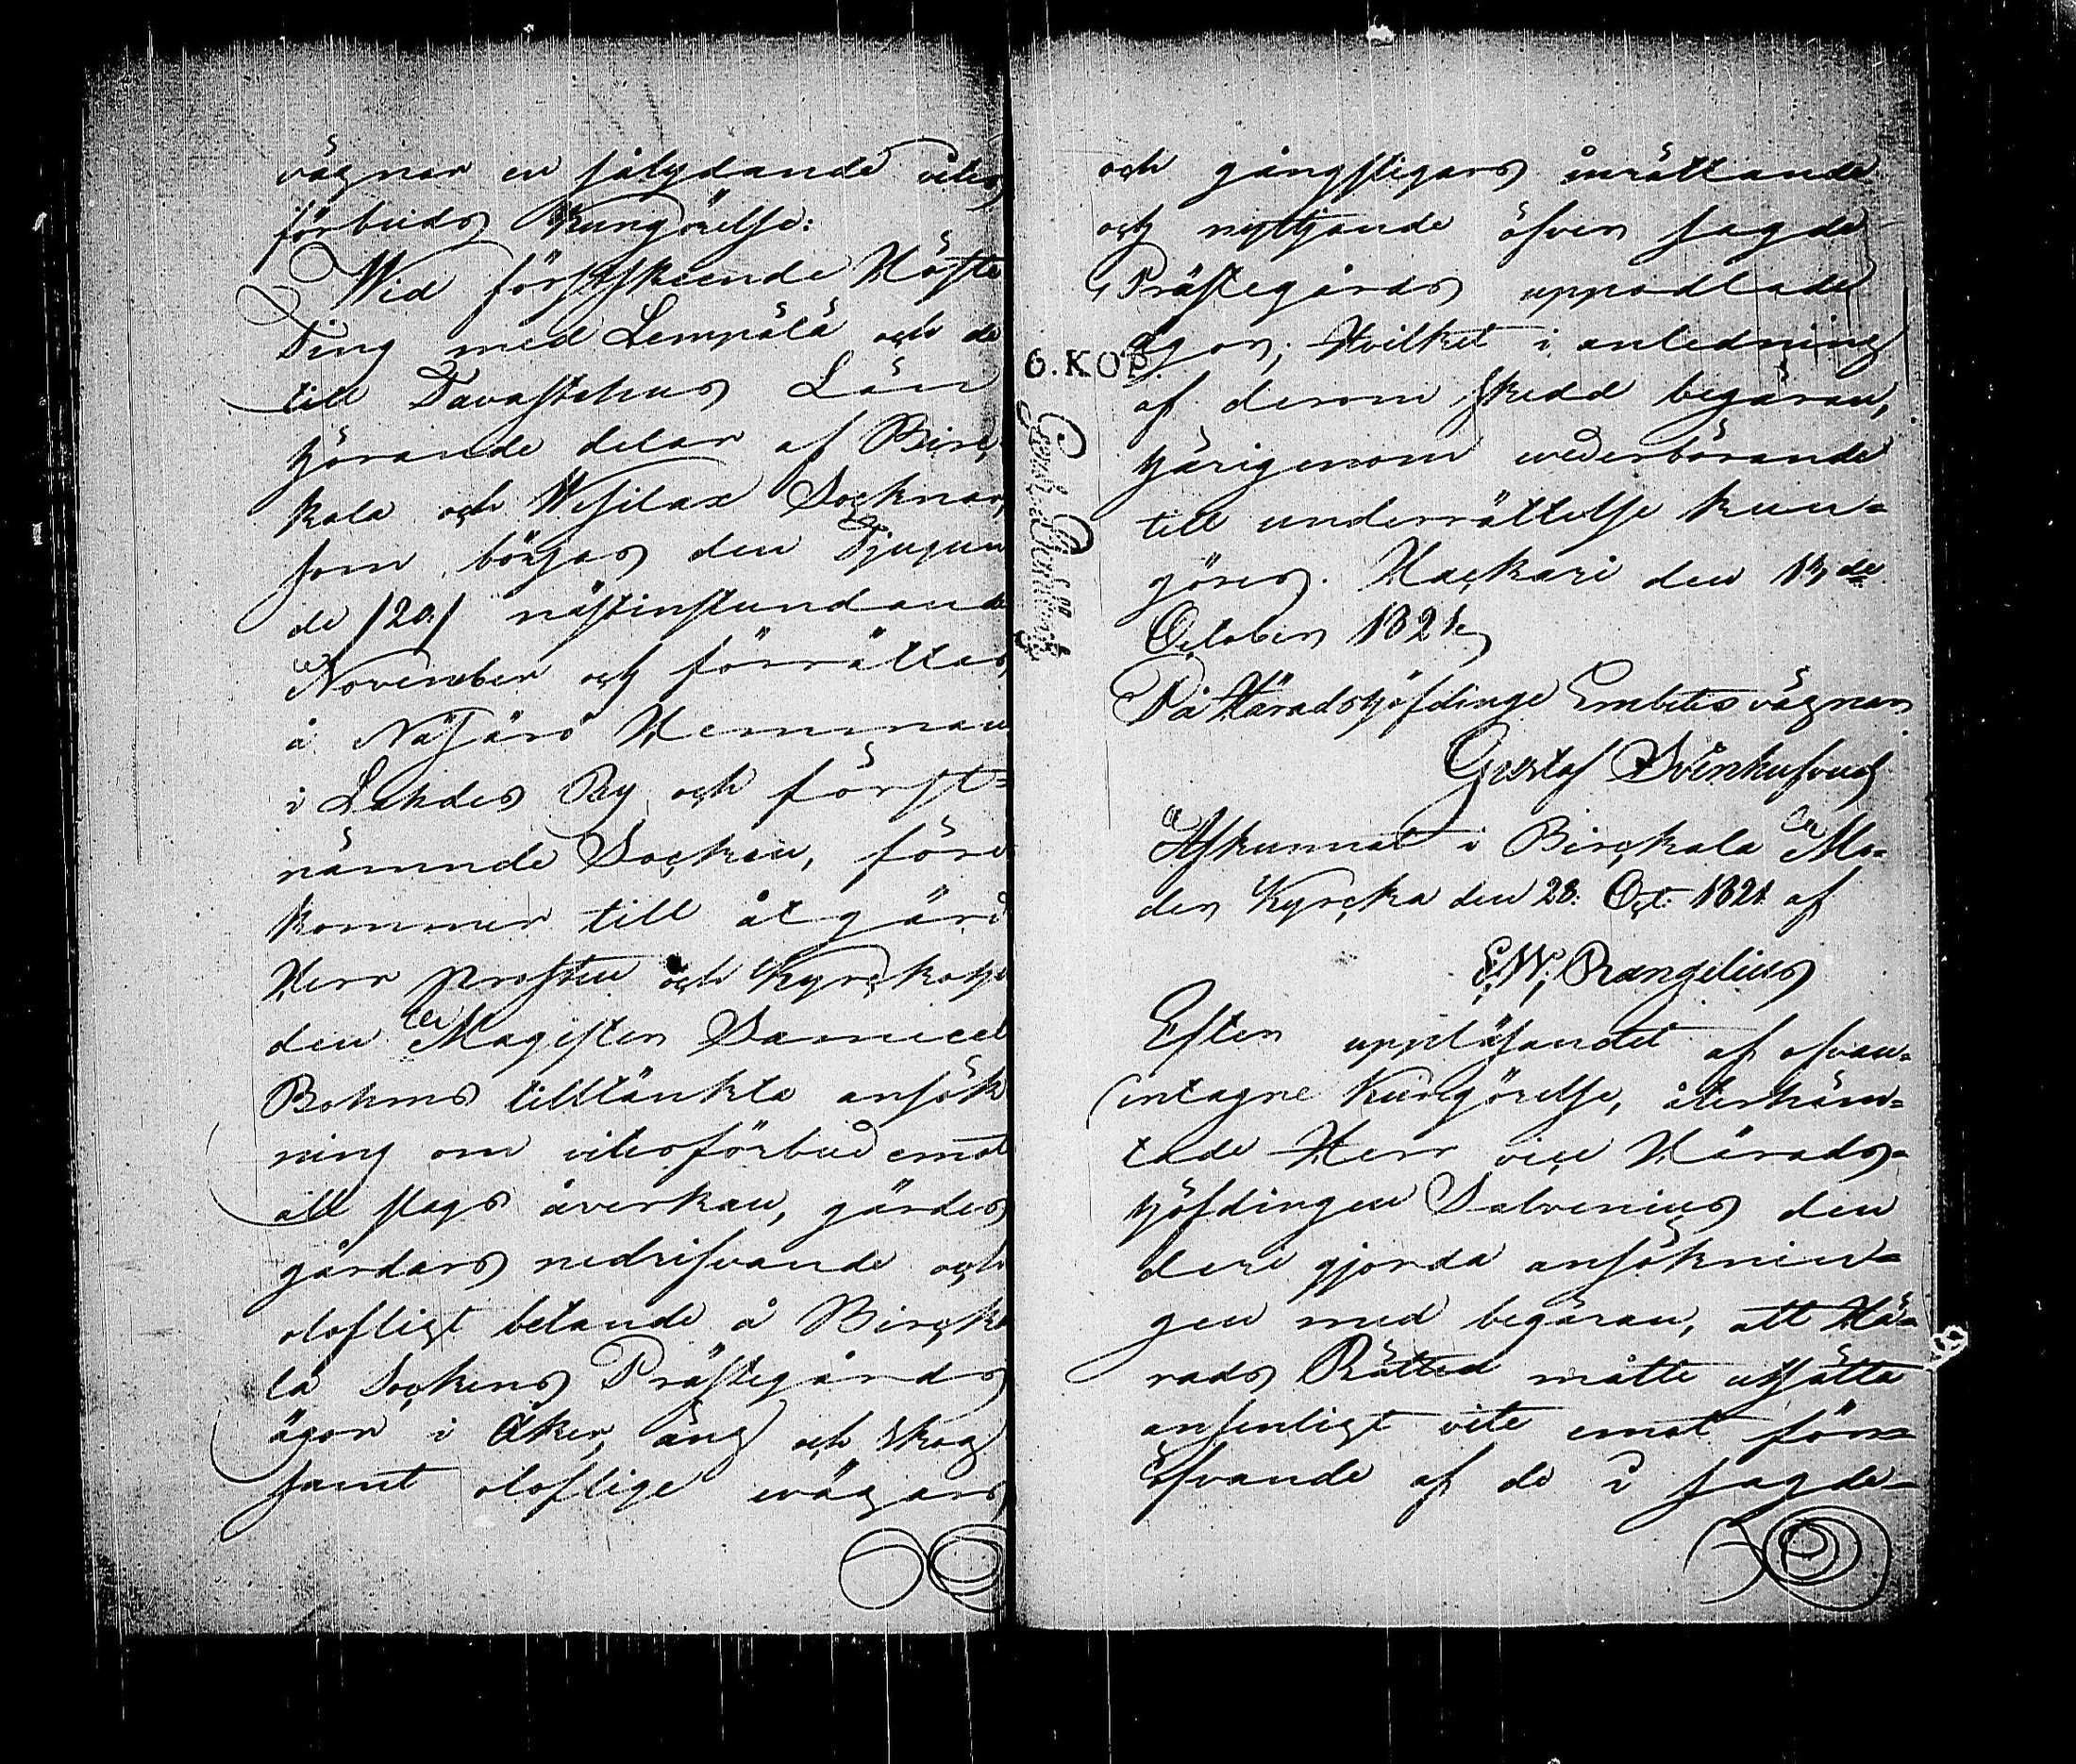 vägnar en sålydande vites
förbuds Kungörelse:
Wid förstskeende Höste
Ting med Lempälä och de
till Tavastehus Län
hörande delar af Birc¬
kala och Wesilax Socknar,
som börjas den Tjugun
de /20/ nästinstundande
November och förrättas
å Näsjärö Hemman
i Lahdes By och först¬
nämnde Socken, före
kommer till åtgärd
Herr Prosten och Kyrckoher
den Magister Samuel
Bohms tilltänkta ansök
ning om vitesförbud emot
all slags åverkan, gärdes
gårdars nedrifvande och
olofligt betande å Birckа
la Sockens Prästegårds
ägor i Åker, äng och skog
samt oloflige vägars
och gångstigars inrättande
och nyttjande öfver sagde
Prästegårds uppodlade
ägor; Hvilket i anledning
6. KOP.
af derom skedd begäran,
härigenom vederbörande
till underrättelse kun¬
göres. Hackari den 13de
October 1821.
På Häradshöfdinge Embetes vägnar
Gustaf Svinhufvud
Afkunnat i Birckala Mo¬
der Kyrcka den 28: Oct: 1821 af
E. W. Rangelius
Efter uppläsandet af ofvan¬
intagne Kungörelse, återhäm¬
tade Herr vice Härads¬
höfdingen Salvenius den
deri gjorda ansöknin¬
gen med begäran, att Hä¬
rads Rätten måtte utsätta
ansenligt vite emot för¬
öfvande af de i sagde